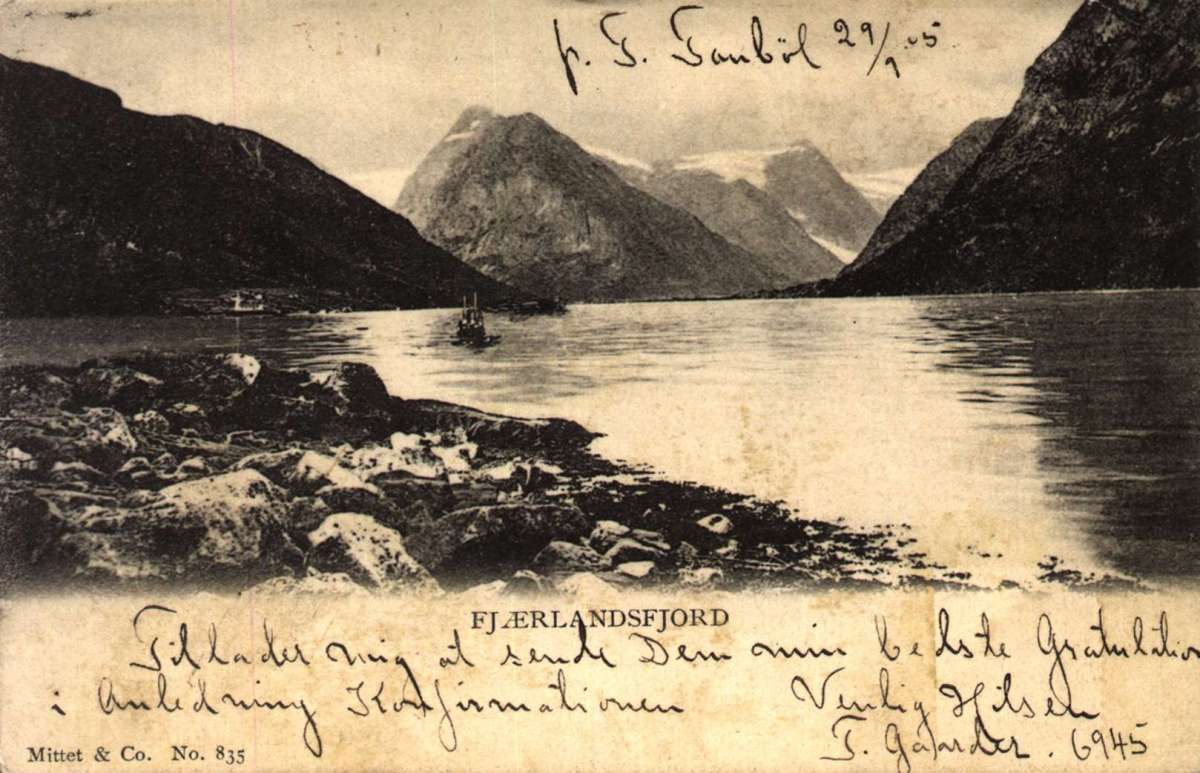 p. T. Tanböl 29/9 05
FJÆRLANDSFJORD
Tillader mig at sende Dem min bedste Gratulation
i Anledning Konfirmationen Venlig Hilsen
T. Gaarder. 6945
Mittet & Co. No. 835